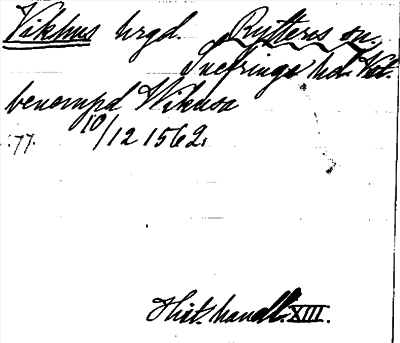 Vikhus hrgd. Ryttern sn.
Snefringe hd. Vst.
benompd Wikusa
10/12 1562.
:77.
Hist. handl. XIII.